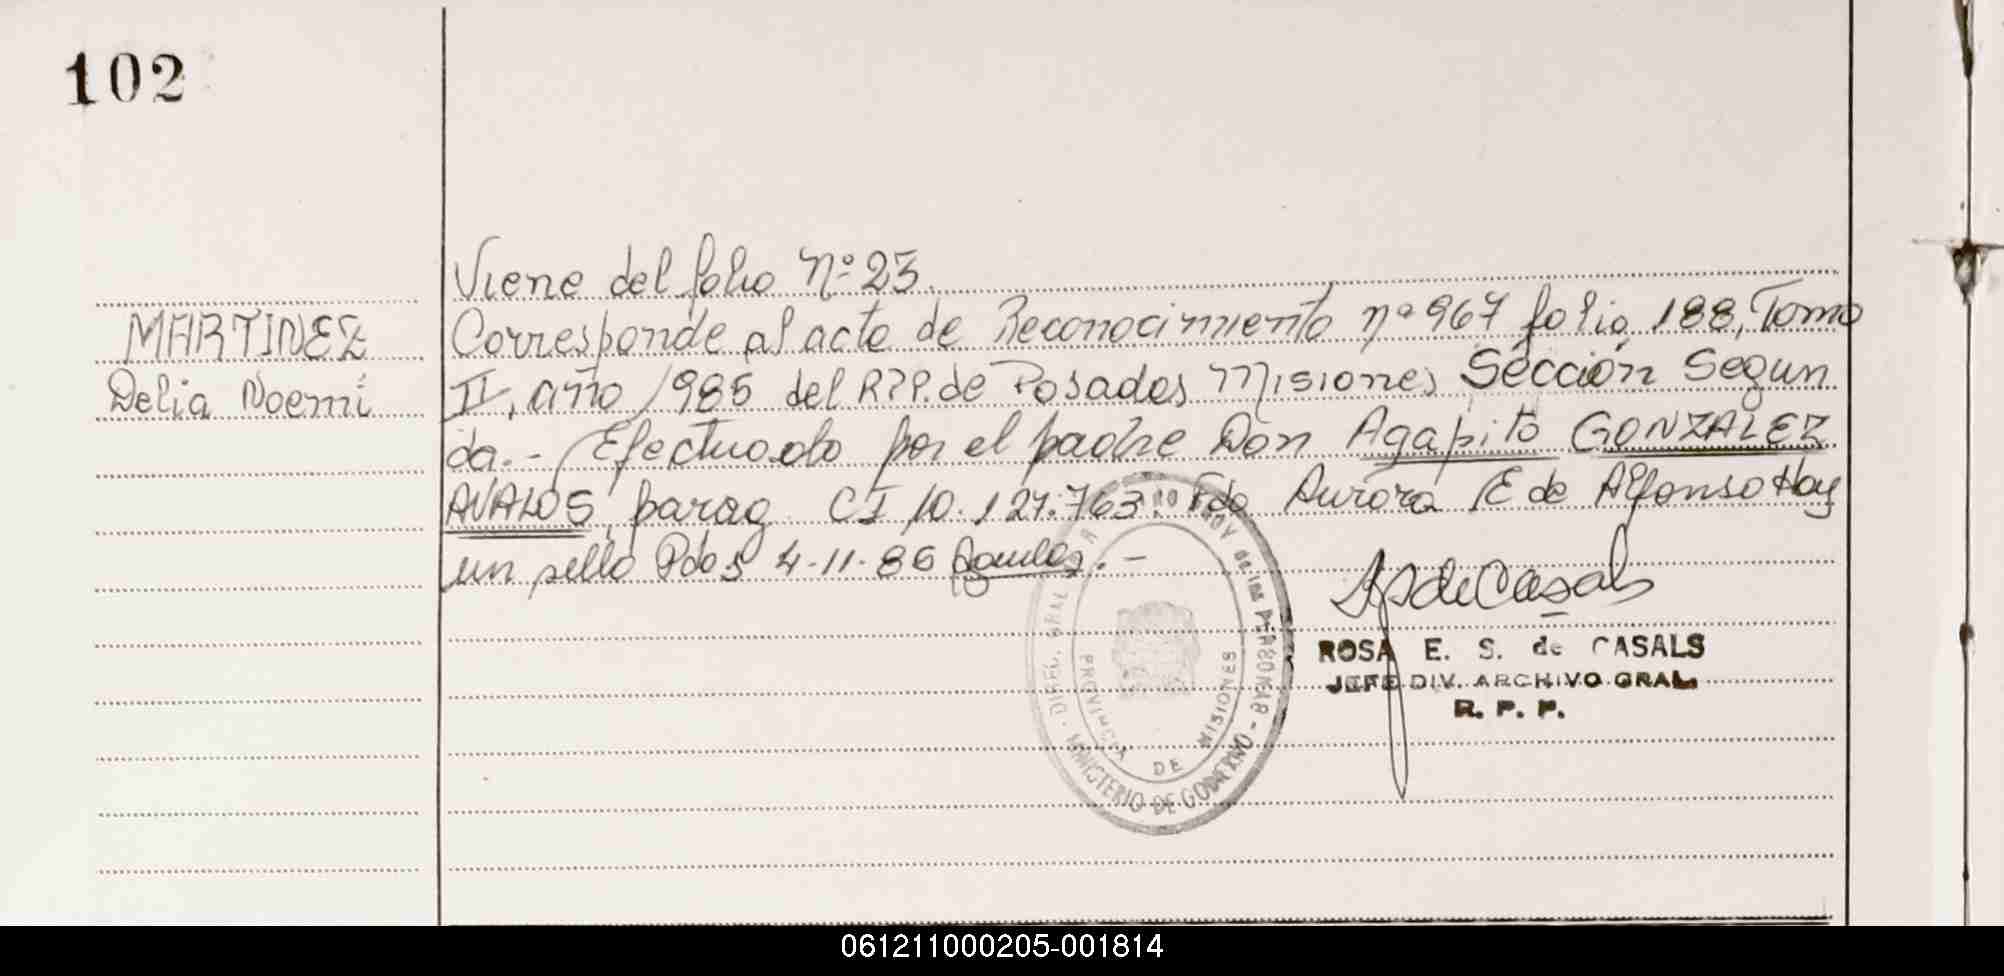 102
MARTINEZ
Delia Noemí
Viene del folio Nº 23.
Corresponde al acta de Reconocimiento nº 967 folio 188, Tomo
II, año 1985 del R.P.P. de Posadas Misiones Sección Segun
da.- Efectuado por el padre Don Agapito GONZALEZ
AVALOS, parag. CI 10.127.763. Fdo Aurora E de Alfonso Hay
un sello Pdos 4-11-86
ROSA E. S. de CASALS
JEFE DIV. ARCHIVO GRAL.
R. P. P.
PROVINCIA DE MISIONES
MINISTERIO DE GOBIERNO
061211000205-001814